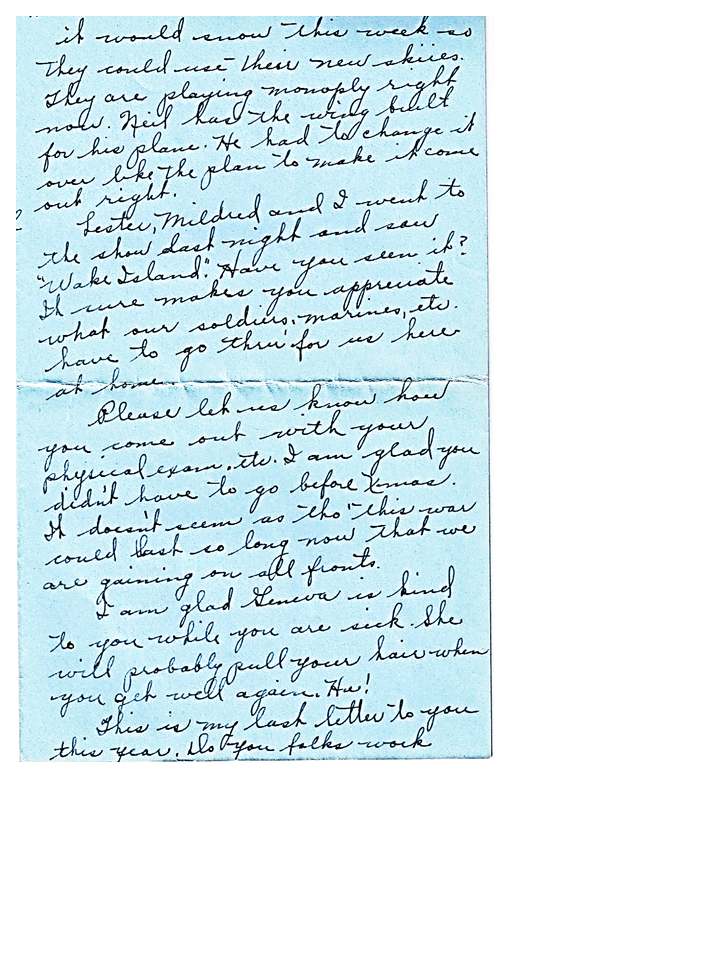 it would snow this week so
they could use their new skiies.
They are playing monoply right
now. Neil has the wing built
for his plane. He had to change it
over like the plan to make it come
out right.
Lester, Mildred and I went to
the show last night and saw
"Wake Island." Have you seen it?
It sure makes you appreciate
what our soldiers, marines, etc.
have to go thru' for us here
at home.
Please let us know how
you come out with your
physical exam. etc. I am glad you
didn't have to go before Xmas.
It doesn't seem as tho' this war
could last so long now that we
are gaining on all fronts.
I am glad Geneva is kind
to you while you are sick. She
will probably pull your hair when
you get well again. Ha!
This is my last letter to you
this year. Do you folks work